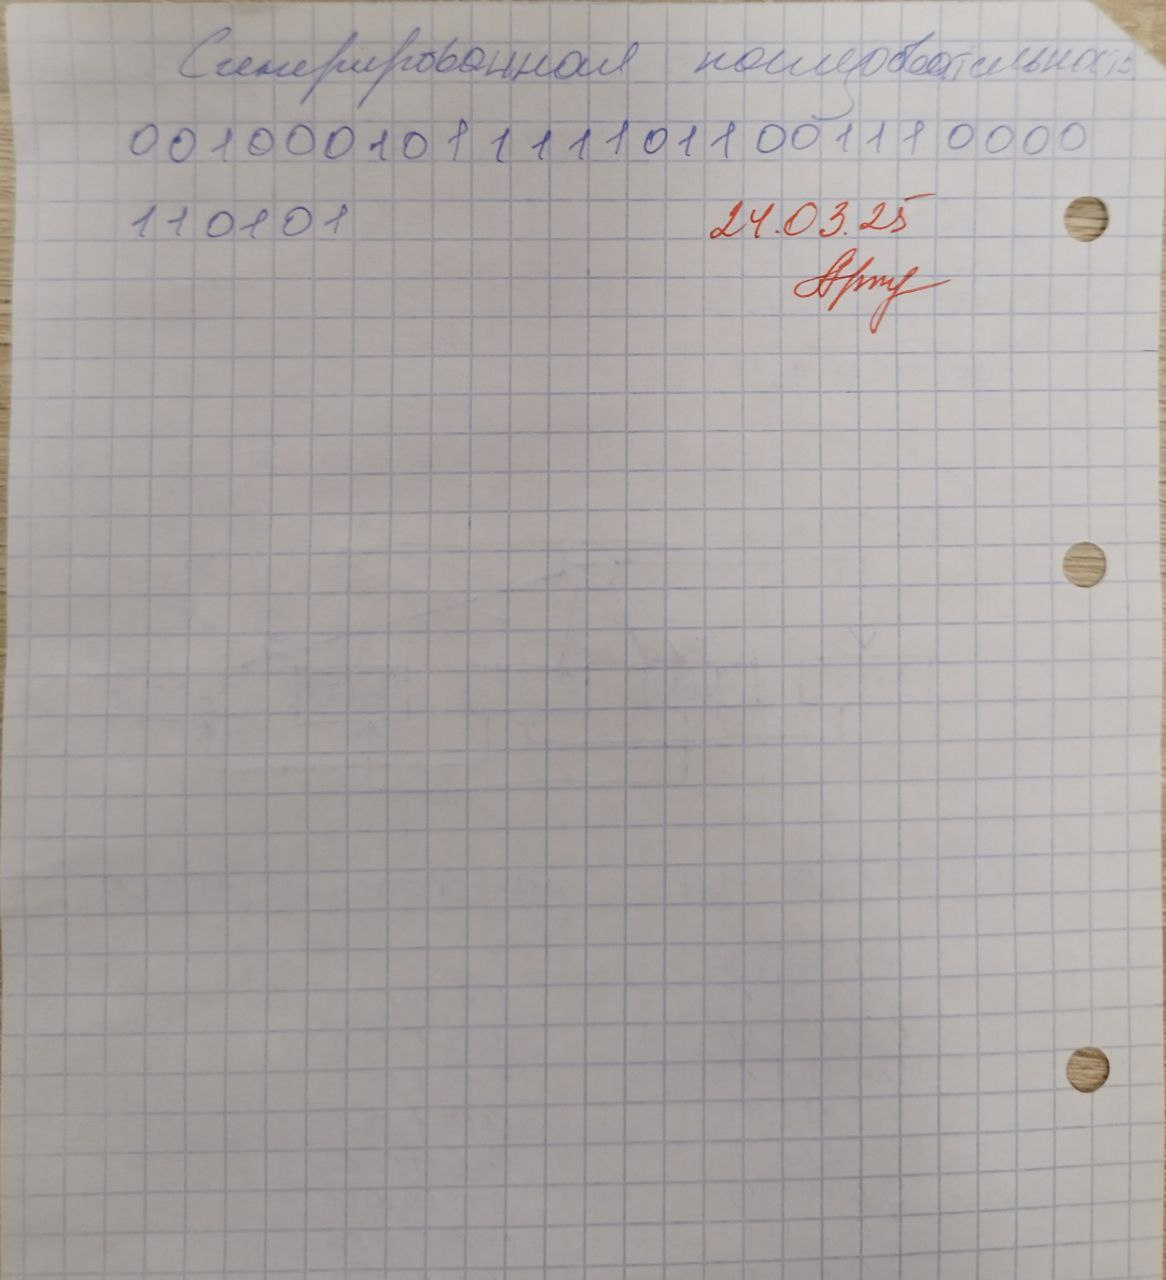 Сгенерированная последовательность
0010001011111011001110000
110101 24.03.25